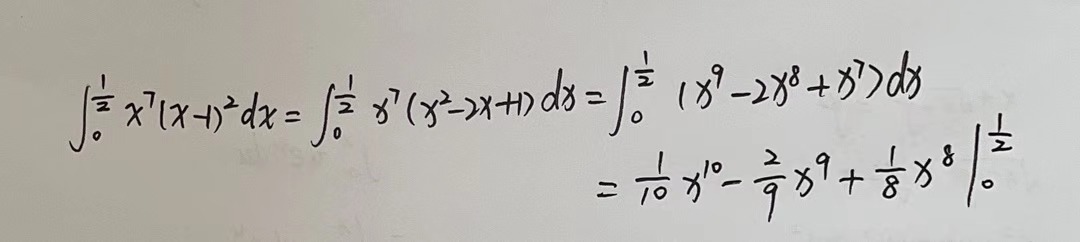 ∫₀^{1/2} x⁷(x-1)²dx = ∫₀^{1/2} x⁷(x²-2x+1)dx = ∫₀^{1/2} (x⁹-2x⁸+x⁷)dx
= 1/10 x¹⁰ - 2/9 x⁹ + 1/8 x⁸ |₀^{1/2}